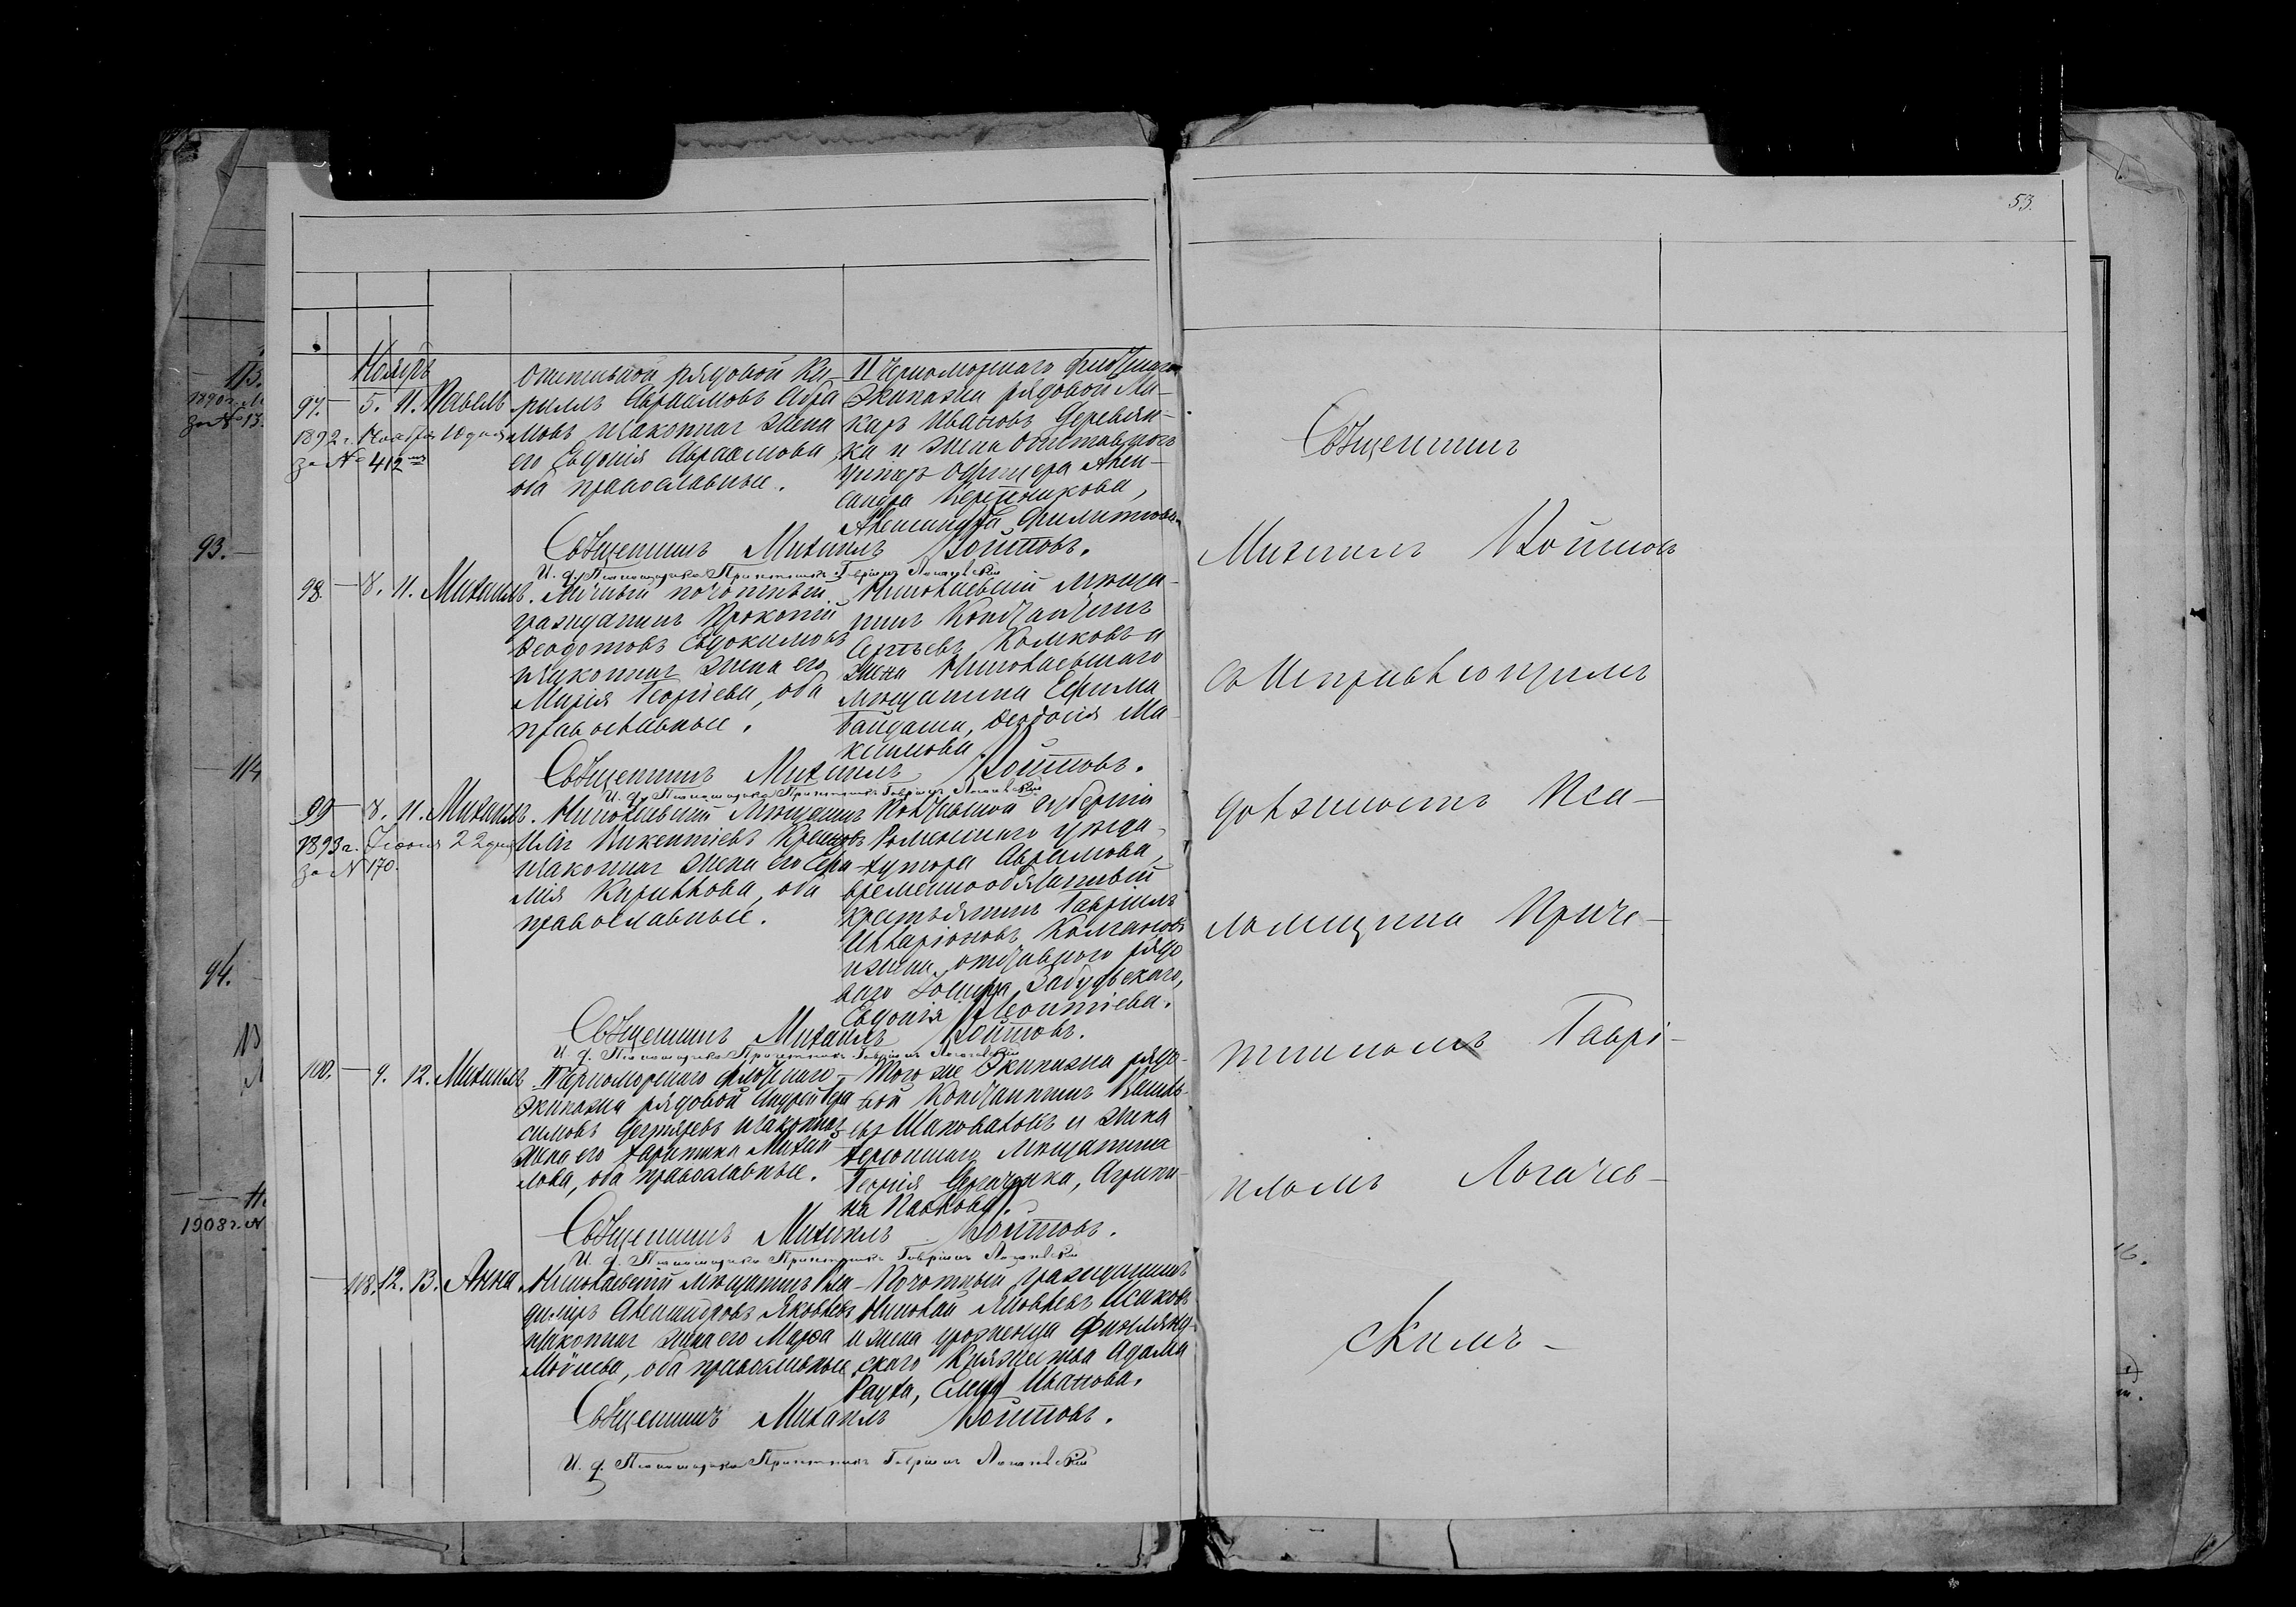 53.
Ноябрь
97. — 5. 11. Павелъ
1892 г. Ноября 10 дня
за № 412
Отставной рядовой Ки-
риллъ Авраамовъ Абра
мовъ и законная жена
его Евдокія Авраамова
оба православные.
II Черноморскаго флотскаго
Экипажа рядовой Ма-
каръ Ивановъ Деревян-
ка и жена отставного
унтеръ офицера Алек-
сандра
Александра Филиппова
Священникъ Михаилъ Войтовъ.
И. д. Псаломщика Причетникъ Гавріилъ
98. — 8. 11. Михаилъ.
Личный почотный
гражданинъ Прокопій
Феодотовъ Евдокимовъ
и законная жена его
Марія Георгіева, оба
православные.
Николаевскій мѣща-
нинъ Константинъ
Сергѣевъ Колмковъ и
жена Николаевскаго
мѣщанина Ефима
Гайдаша, Феодосія Ма-
ксимова.
Священникъ Михаилъ Войтовъ.
И. д. Псаломщика Причетникъ Гавріилъ
99 — 8. 11. Михаилъ.
1893 г. Іюня 22 дня
за № 170.
Николаевскій мѣщанинъ
Илія Викентіевъ
и законная жена его
Кириллова, оба
православные.
Полтавской губерніи
Роменскаго уѣзда,
хутора Аврамова,
временнообязанный
крестьянинъ Гавріилъ
Илларіоновъ Колгановъ
и жена отставного рядо
ваго Забудьскаго,
Евдокія Леонтіева.
Священникъ Михаилъ Войтовъ.
И. д. Псаломщика Причетникъ Гавріилъ
100. — 9. 12. Михаилъ
Черноморскаго флотскаго
Экипажа рядовой Андрей Гера
симовъ Дегтяревъ и законная
жена его Харитина Михай
лова, оба православные.
Того же Экипажа рядо-
вой Константинъ Василь-
евъ Шаповаловъ и жена
Херсонскаго мѣщанина
Георгія Агрипи-
на Павлова.
Священникъ Михаилъ Войтовъ.
И. д. Псаломщика Причетникъ Гавріилъ
— 118. 12. 13. Анна
Николаевскій мѣщанинъ Вла-
диміръ Александровъ Яковлевъ
и законная жена его Марфа
Моисеева, оба православные
Почотный гражданинъ
Николай Яковлевъ Исаковъ
и жена уроженца Финлянд-
скаго Княжества Адама
Рауха, Елена Иванова.
Священникъ Михаилъ Войтовъ.
И. д. Псаломщика Причетникъ Гавріилъ
Священникъ
Михаилъ Войтовъ
Съ Исправляющимъ
должность Пса-
ломщика Приче-
тникомъ Гаврі-
иломъ Логачев-
скимъ —
93. —
114
94.
1908 г. №